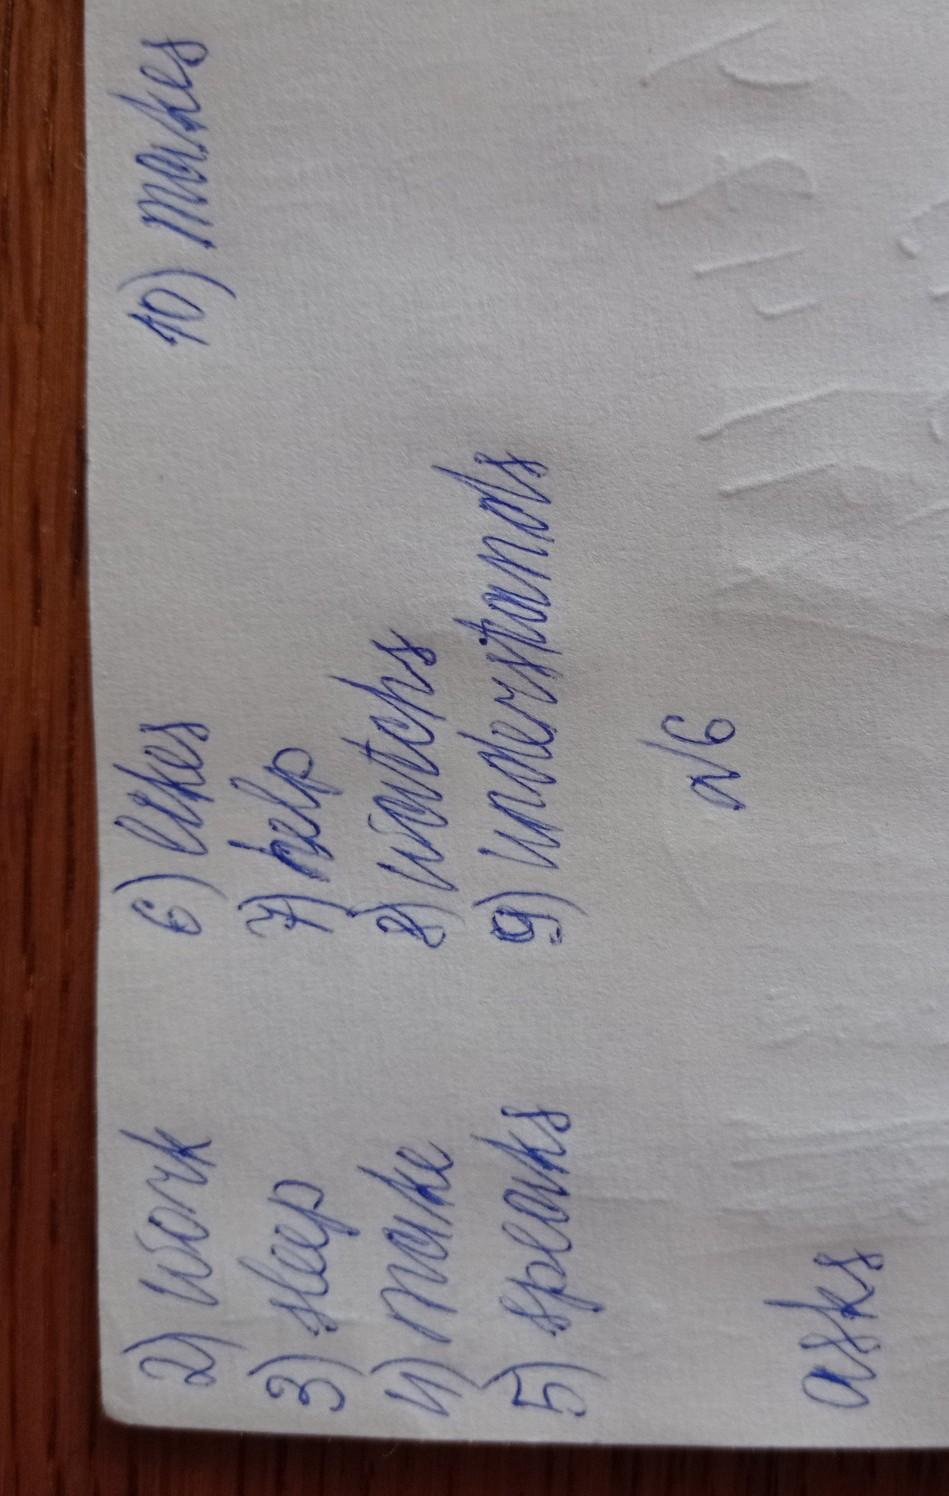 2) work
3) sleep
4) make
5) speaks
6) likes
7) help
8) watchs
9) understands
10) makes
№6
asks